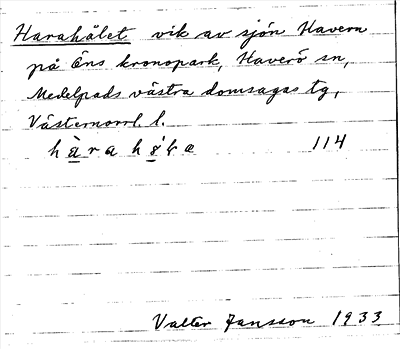 Harahålet vik av sjön Havern
på Öns kronopark, Haverö sn,
Medelpads västra domsagas tg,
Västernorrl. l.
114
Valter Jansson 1933